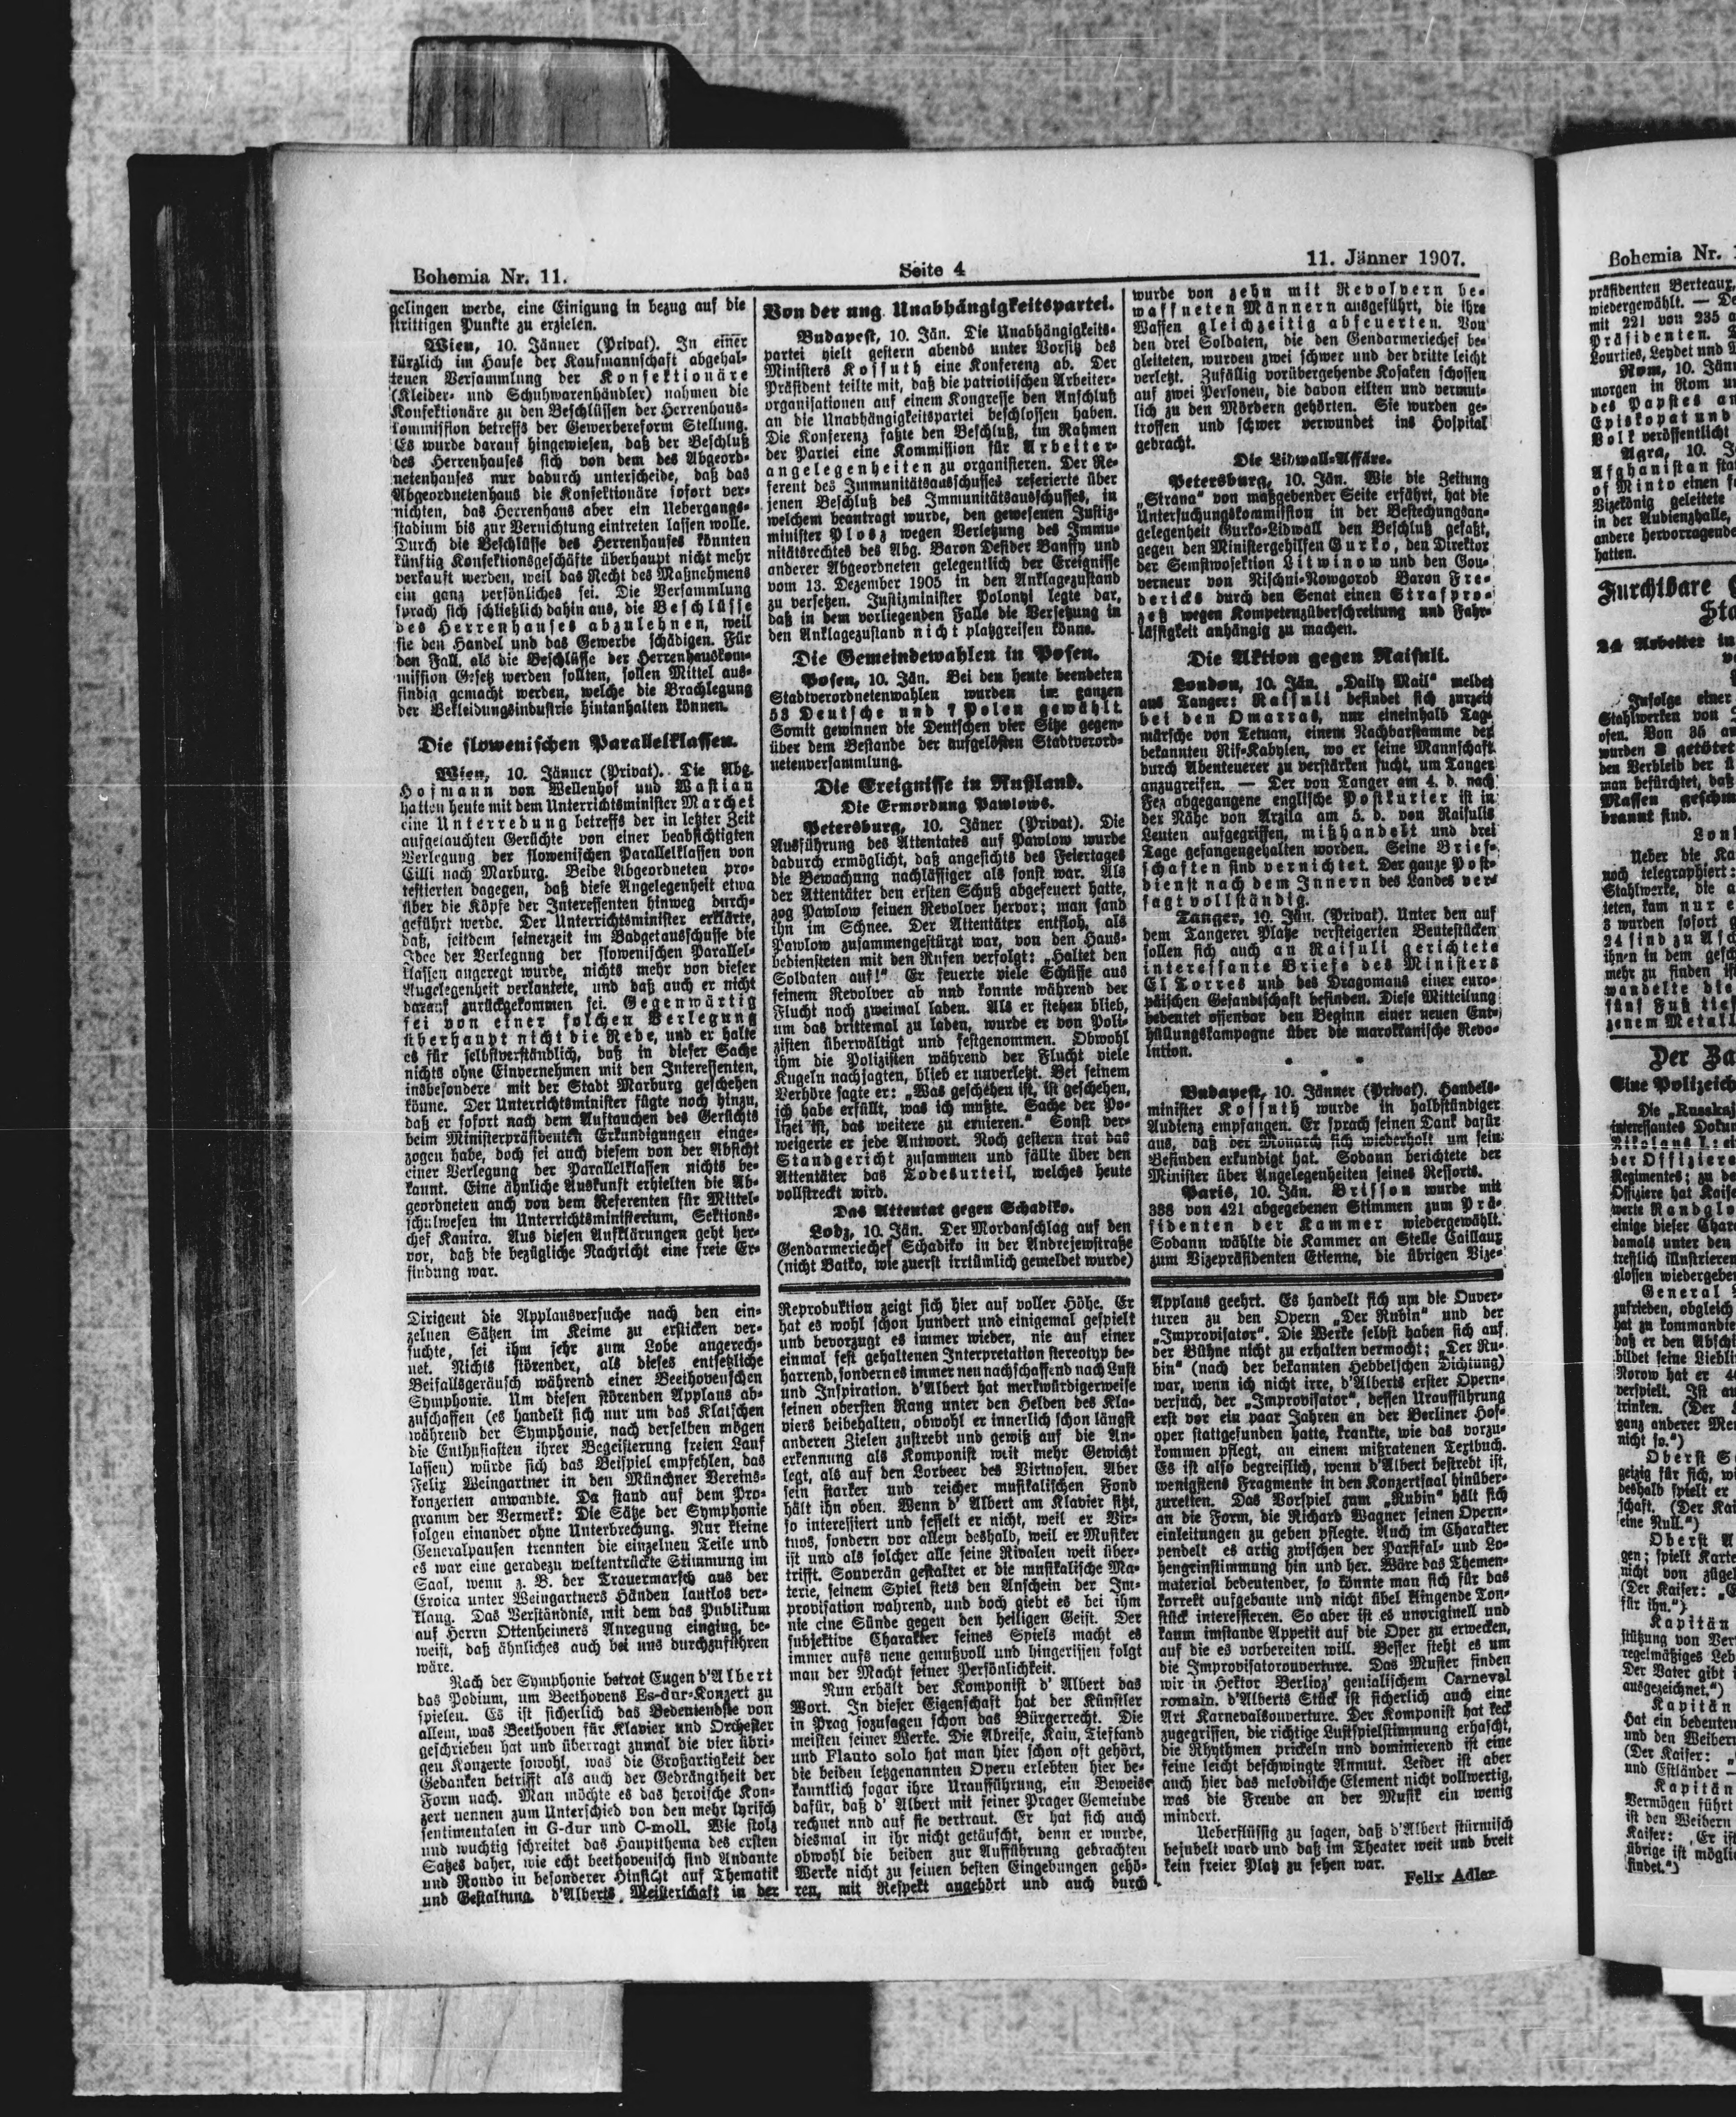 Bohemia Nr. 11.
Seite 4
11. Jänner 1907.
gelingen werde, eine Einigung in bezug auf die
strittigen Punkte zu erzielen.
Wien, 10. Jänner (Privat). In einer
kürzlich im Hause der Kaufmannschaft abgehal-
tenen Versammlung der Konfektionäre
(Kleider- und Schuhwarenhändler) nahmen die
Konfektionäre zu den Beschlüssen der Herrenhaus-
kommission betreffs der Gewerbereform Stellung.
Es wurde darauf hingewiesen, daß der Beschluß
des Herrenhauses sich von dem des Abgeord-
netenhauses nur dadurch unterscheide, daß das
Abgeordnetenhaus die Konfektionäre sofort ver-
nichten, das Herrenhaus aber ein Uebergangs-
stadium bis zur Vernichtung eintreten lassen wolle.
Durch die Beschlüsse des Herrenhauses könnten
künftig Konfektionsgeschäfte überhaupt nicht mehr
verkauft werden, weil das Recht des Maßnehmens
ein ganz persönliches sei. Die Versammlung
sprach sich schließlich dahin aus, die Beschlüsse
des Herrenhauses abzulehnen, weil
sie den Handel und das Gewerbe schädigen. Für
den Fall, als die Beschlüsse der Herrenhauskom-
mission Gesetz werden sollten, sollen Mittel aus-
findig gemacht werden, welche die Brachlegung
der Bekleidungsindustrie hintanhalten können.
Die slowenischen Parallelklassen.
Wien, 10. Jänner (Privat). Die Abg.
Hofmann von Wellenhof und Wastian
hatten heute mit dem Unterrichtsminister Marchet
eine Unterredung betreffs der in letzter Zeit
aufgetauchten Gerüchte von einer beabsichtigten
Verlegung der slowenischen Parallelklassen von
Cilli nach Marburg. Beide Abgeordneten pro-
testierten dagegen, daß diese Angelegenheit etwa
über die Köpfe der Interessenten hinweg durch-
geführt werde. Der Unterrichtsminister erklärte,
daß, seitdem seinerzeit im Badgetausschusse die
Idee der Verlegung der slowenischen Parallel-
klassen angeregt wurde, nichts mehr von dieser
Angelegenheit verlautete, und daß auch er nicht
darauf zurückgekommen sei. Gegenwärtig
sei von einer solchen Verlegung
überhaupt nicht die Rede, und er halte
es für selbstverständlich, daß in dieser Sache
nichts ohne Einvernehmen mit den Interessenten,
insbesondere mit der Stadt Marburg geschehen
könne. Der Unterrichtsminister fügte noch hinzu,
daß er sofort nach dem Auftauchen des Gerüchts
beim Ministerpräsidenten Erkundigungen einge-
zogen habe, doch sei auch diesem von der Absicht
einer Verlegung der Parallelklassen nichts be-
kannt. Eine ähnliche Auskunft erhielten die Ab-
geordneten auch von dem Referenten für Mittel-
schulwesen im Unterrichtsministerium, Sektions-
chef Kanira. Aus diesen Aufklärungen geht her-
vor, daß die bezügliche Nachricht eine freie Er-
findung war.
Von der ung. Unabhängigkeitspartei.
Budapest, 10. Jän. Die Unabhängigkeits-
partei hielt gestern abends unter Vorsitz des
Ministers Kossuth eine Konferenz ab. Der
Präsident teilte mit, daß die patriotischen Arbeiter-
organisationen auf einem Kongresse den Anschluß
an die Unabhängigkeitspartei beschlossen haben.
Die Konferenz faßte den Beschluß, im Rahmen
der Partei eine Kommission für Arbeiter-
angelegenheiten zu organisieren. Der Re-
ferent des Immunitätsausschusses referierte über
jenen Beschluß des Immunitätsausschusses, in
welchem beantragt wurde, den gewesenen Justiz-
minister Plosz wegen Verletzung des Immu-
nitätsrechtes des Abg. Baron Desider Banffy und
anderer Abgeordneten gelegentlich der Ereignisse
vom 13. Dezember 1905 in den Anklagezustand
zu versetzen. Justizminister Polonyi legte dar,
daß in dem vorliegenden Falle die Versetzung in
den Anklagezustand nicht platzgreifen könne.
Die Gemeindewahlen in Posen.
Posen, 10. Jän. Bei den heute beendeten
Stadtverordnetenwahlen wurden im ganzen
53 Deutsche und 7 Polen gewählt.
Somit gewinnen die Deutschen vier Sitze gegen-
über dem Bestande der aufgelösten Stadtverord-
netenversammlung.
Die Ereignisse in Rußland.
Die Ermordung Pawlows.
Petersburg, 10. Jäner (Privat). Die
Ausführung des Attentates auf Pawlow wurde
dadurch ermöglicht, daß angesichts des Feiertages
die Bewachung nachlässiger als sonst war. Als
der Attentäter den ersten Schuß abgefeuert hatte,
zog Pawlow seinen Revolver hervor; man fand
ihn im Schnee. Der Attentäter entfloh, als
Pawlow zusammengestürzt war, von den Haus-
bediensteten mit den Rufen verfolgt: „Haltet den
Soldaten auf!“ Er feuerte viele Schüsse aus
seinem Revolver ab und konnte während der
Flucht noch zweimal laden. Als er stehen blieb,
um das drittemal zu laden, wurde er von Poli-
zisten überwältigt und festgenommen. Obwohl
ihm die Polizisten während der Flucht viele
Kugeln nachjagten, blieb er unverletzt. Bei seinem
Verhöre sagte er: „Was geschehen ist, ist geschehen,
ich habe erfüllt, was ich mußte. Sache der Po-
lizei ist, das weitere zu eruieren.“ Sonst ver-
weigerte er jede Antwort. Noch gestern trat das
Standgericht zusammen und fällte über den
Attentäter das Todesurteil, welches heute
vollstreckt wird.
Das Attentat gegen Schadiko.
Lodz, 10. Jän. Der Mordanschlag auf den
Gendarmeriechef Schadiko in der Andrejewstraße
(nicht Batko, wie zuerst irrtümlich gemeldet wurde)
wurde von zehn mit Revolvern be-
waffneten Männern ausgeführt, die ihre
Waffen gleichzeitig abfeuerten. Von
den drei Soldaten, die den Gendarmeriechef be-
gleiteten, wurden zwei schwer und der dritte leicht
verletzt. Zufällig vorübergehende Kosaken schossen
auf zwei Personen, die davon eilten und vermut-
lich zu den Mördern gehörten. Sie wurden ge-
troffen und schwer verwundet ins Hospital
gebracht.
Die Lidwall-Affäre.
Petersburg, 10. Jän. Wie die Zeitung
„Strana“ von maßgebender Seite erfährt, hat die
Untersuchungskommission in der Bestechungsan-
gelegenheit Gurko-Lidwall den Beschluß gefaßt,
gegen den Ministergehilfen Gurko, den Direktor
der Semstwosektion Litwinow und den Gou-
verneur von Nischni-Nowgorod Baron Fre-
dericks durch den Senat einen Strafpro-
zeß wegen Kompetenzüberschreitung und Fahr-
lässigkeit anhängig zu machen.
Die Aktion gegen Raisuli.
London, 10. Jän. „Daily Mail“ meldet
aus Tanger: Raisuli befindet sich zurzeit
bei den Omarras, nur eineinhalb Tag-
märsche von Tetuan, einem Nachbarstamme der
bekannten Rif-Kabylen, wo er seine Mannschaft
durch Abenteuerer zu verstärken sucht, um Tanger
anzugreifen. — Der von Tanger am 4. d. nach
Fez abgegangene englische Postkurier ist in
der Nähe von Arzila am 5. d. von Raisulis
Leuten aufgegriffen, mißhandelt und drei
Tage gefangengehalten worden. Seine Brief-
schaften sind vernichtet. Der ganze Post-
dienst nach dem Innern des Landes ver-
sagt vollständig.
Tanger, 10. Jän. (Privat). Unter den auf
dem Tangerer Platze versteigerten Beutestücken
sollen sich auch an Raisuli gerichtete
interessante Briefe des Ministers
El Torres und des Dragomans einer euro-
päischen Gesandtschaft befinden. Diese Mitteilung
bedeutet offenbar den Beginn einer neuen Ent-
hüllungskampagne über die marokkanische Revo-
lution.
* * *
Budapest, 10. Jänner (Privat). Handels-
minister Kossuth wurde in halbstündiger
Audienz empfangen. Er sprach seinen Dank dafür
aus, daß der Monarch sich wiederholt um sein
Befinden erkundigt hat. Sodann berichtete der
Minister über Angelegenheiten seines Ressorts.
Paris, 10. Jän. Brisson wurde mit
388 von 421 abgegebenen Stimmen zum Prä-
sidenten der Kammer wiedergewählt.
Sodann wählte die Kammer an Stelle Caillaux
zum Vizepräsidenten Etienne, die übrigen Vize-
Dirigent die Applausversuche nach den ein-
zelnen Sätzen im Keime zu ersticken ver-
suchte, sei ihm sehr zum Lobe angerech-
net. Nichts störender, als dieses entsetzliche
Beifallsgeräusch während einer Beethovenschen
Symphonie. Um diesen störenden Applaus ab-
zuschaffen (es handelt sich nur um das Klatschen
während der Symphonie, nach derselben mögen
die Enthusiasten ihrer Begeisterung freien Lauf
lassen) würde sich das Beispiel empfehlen, das
Felix Weingartner in den Münchner Vereins-
konzerten anwandte. Da stand auf dem Pro-
gramm der Vermerk: Die Sätze der Symphonie
folgen einander ohne Unterbrechung. Nur kleine
Generalpausen trennten die einzelnen Teile und
es war eine geradezu weltentrückte Stimmung im
Saal, wenn z. B. der Trauermarsch aus der
Eroica unter Weingartners Händen lautlos ver-
klang. Das Verständnis, mit dem das Publikum
auf Herrn Ottenheimers Anregung einging, be-
weist, daß ähnliches auch bei uns durchzuführen
wäre.
Nach der Symphonie betrat Eugen d'Albert
das Podium, um Beethovens Es-dur-Konzert zu
spielen. Es ist sicherlich das Bedeutendste von
allem, was Beethoven für Klavier und Orchester
geschrieben hat und überragt zumal die vier übri-
gen Konzerte sowohl, was die Großartigkeit der
Gedanken betrifft als auch der Gedrängtheit der
Form nach. Man möchte es das heroische Kon-
zert nennen zum Unterschied von den mehr lyrisch
sentimentalen in G-dur und C-moll. Wie stolz
und wuchtig schreitet das Hauptthema des ersten
Satzes daher, wie echt beethovenisch sind Andante
und Rondo in besonderer Hinsicht auf Thematik
und Gestaltung. d'Alberts Meisterschaft in der
Reproduktion zeigt sich hier auf voller Höhe. Er
hat es wohl schon hundert und einigemal gespielt
und bevorzugt es immer wieder, nie auf einer
einmal fest gehaltenen Interpretation stereotyp be-
harrend, sondern es immer neu nachschaffend nach Lust
und Inspiration. d'Albert hat merkwürdigerweise
seinen obersten Rang unter den Helden des Kla-
viers beibehalten, obwohl er innerlich schon längst
anderen Zielen zustrebt und gewiß auf die An-
erkennung als Komponist weit mehr Gewicht
legt, als auf den Lorbeer des Virtuosen. Aber
sein starker und reicher musikalischen Fond
hält ihn oben. Wenn d' Albert am Klavier sitzt,
so interessiert und fesselt er nicht, weil er Vir-
tuos, sondern vor allem deshalb, weil er Musiker
ist und als solcher alle seine Rivalen weit über-
trifft. Souverän gestaltet er die musikalische Ma-
terie, seinem Spiel stets den Anschein der Im-
provisation wahrend, und doch giebt es bei ihm
nie eine Sünde gegen den heiligen Geist. Der
subjektive Charakter seines Spiels macht es
immer aufs neue genußvoll und hingerissen folgt
man der Macht seiner Persönlichkeit.
Nun erhält der Komponist d' Albert das
Wort. In dieser Eigenschaft hat der Künstler
in Prag sozusagen schon das Bürgerrecht. Die
meisten seiner Werke. Die Abreise, Kain, Tiefland
und Flauto solo hat man hier schon oft gehört,
die beiden letzgenannten Opern erlebten hier be-
kanntlich sogar ihre Uraufführung, ein Beweise
dafür, daß d' Albert mit seiner Prager Gemeinde
rechnet und auf sie vertraut. Er hat sich auch
diesmal in ihr nicht getäuscht, denn er wurde,
obwohl die beiden zur Aufführung gebrachten
Werke nicht zu seinen besten Eingebungen gehö-
ren, mit Respekt angehört und auch durch
Applaus geehrt. Es handelt sich um die Ouver-
turen zu den Opern „Der Rubin“ und der
„Improvisator“. Die Werke selbst haben sich auf
der Bühne nicht zu erhalten vermocht; „Der Ru-
bin“ (nach der bekannten Hebbelschen Dichtung)
war, wenn ich nicht irre, d'Alberts erster Opern-
versuch, der „Improvisator“, dessen Uraufführung
erst vor ein paar Jahren an der Berliner Hof-
oper stattgefunden hatte, krankte, wie das vorzu-
kommen pflegt, an einem mißratenen Textbuch.
Es ist also begreiflich, wenn d'Albert bestrebt ist,
wenigstens Fragmente in den Konzertsaal hinüber-
zuretten. Das Vorspiel zum „Rubin“ hält sich
an die Form, die Richard Wagner seinen Opern-
einleitungen zu geben pflegte. Auch im Charakter
pendelt es artig zwischen der Parsifal- und Lo-
hengrinstimmung hin und her. Wäre das Themen-
material bedeutender, so könnte man sich für das
korrekt aufgebaute und nicht übel klingende Ton-
stück interessieren. So aber ist es unoriginell und
kaum imstande Appetit auf die Oper zu erwecken,
auf die es vorbereiten will. Besser steht es um
die Improvisatorouverture. Das Muster finden
wir in Hektor Berlioz' genialischem Carneval
romain. d'Alberts Stück ist sicherlich auch eine
Art Karnevalsouverture. Der Komponist hat keck
zugegriffen, die richtige Lustspielstimmung erhascht,
die Rhythmen prickeln und dominierend ist eine
feine leicht beschwingte Anmut. Leider ist aber
auch hier das melodische Element nicht vollwertig,
was die Freude an der Musik ein wenig
mindert.
Ueberflüssig zu sagen, daß d'Albert stürmisch
bejubelt ward und daß im Theater weit und breit
kein freier Platz zu sehen war.
Felix Adler
Bohemia Nr.
präsidenten Berteaux,
wiedergewählt. — De
mit 221 von 235 a
Präsidenten.
Lourties, Leydet und
Rom, 10. Jän
morgen in Rom
des Papstes an
Episkopat und
Volk veröffentlicht
Agra, 10. J
Afghanistan sta
of Minto einen
Vizekönig geleitete
in der Audienzhalle,
andere hervorragende
hatten.
Furchtbare
Sta
24 Arbeiter in
Infolge einer
Stahlwerken von
ofen. Von 35 an
wurden 8 getötet
den Verbleib der ü
man befürchtet, daß
Massen geschm
brannt sind.
Lon
Ueber die Ka
noch telegraphiert:
Stahlwerke, die a
teten, kam nur e
3 wurden sofort g
24 sind zu Asch
ihnen in dem gesch
mehr zu finden
wandelte die
fünf Fuß tief
zenem Metall
Der Za
Eine Polizeich
Die „Russkaj
interessantes Dokum
Nikolaus I.: ei
der Offiziere
Regimentes; zu de
Offiziere hat Kaise
werte Randglo
einige dieser Char
damals unter den
trefflich illustrieren
glossen wiedergeben
General
zufrieden, obgleich
hat zu kommandie
daß er den Abschi
bildet seine Liebli
Norow hat er 4
verspielt. Ist au
trinken. (Der
ganz anderer Men
nicht so.“)
Oberst S
geizig für sich, wi
deshalb spielt er
schaft. (Der Kai
eine Null.“)
Oberst A
gen; spielt Karte
nicht von zügel
(Der Kaiser: „
für ihn.“)
Kapitän
stützung von Ver
regelmäßiges Leb
Der Vater gibt
ausgezeichnet.“)
Kapitän
Hat ein bedeuten
und den Weibern
(Der Kaiser: „
und Estländer —
Kapitän
Vermögen führt
ist den Weibern
Kaiser: „Er ist
übrige ist mögli
findet.“)